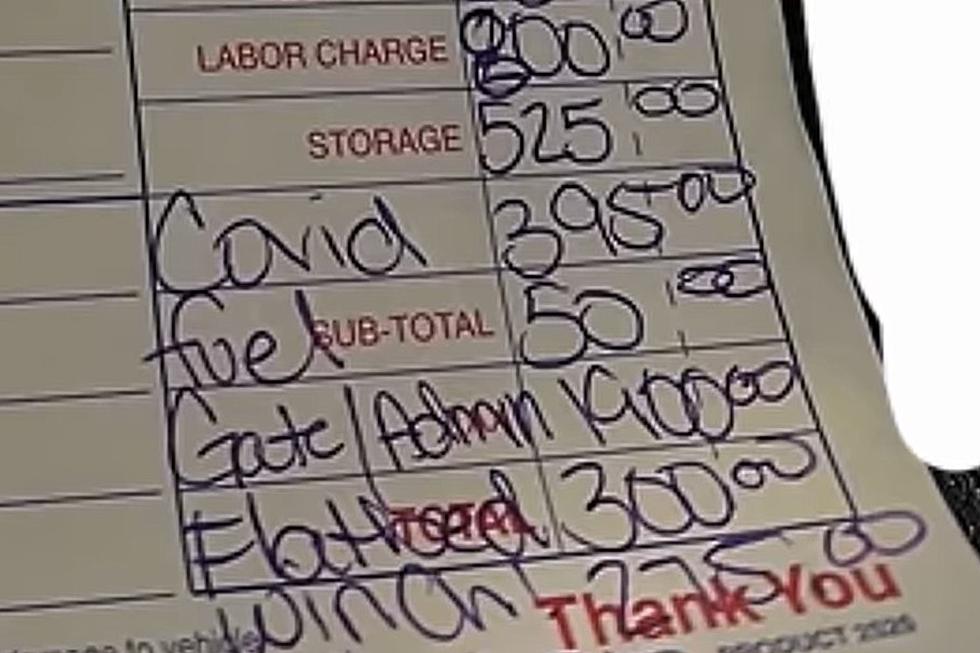 LABOR CHARGE 800.00
STORAGE 525.00
Covid 395.00
fuel SUB-TOTAL 50.00
Gate/Admin 1900.00
Flatbed TOTAL 300.00
Winch 275.00
Thank You
to vehicle PRODUCT 2525